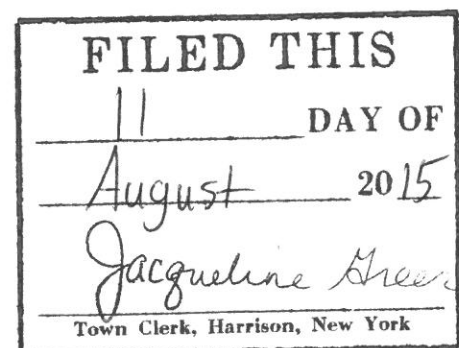 FILED THIS
11 DAY OF
August 2015
Jacqueline Greer
Town Clerk, Harrison, New York